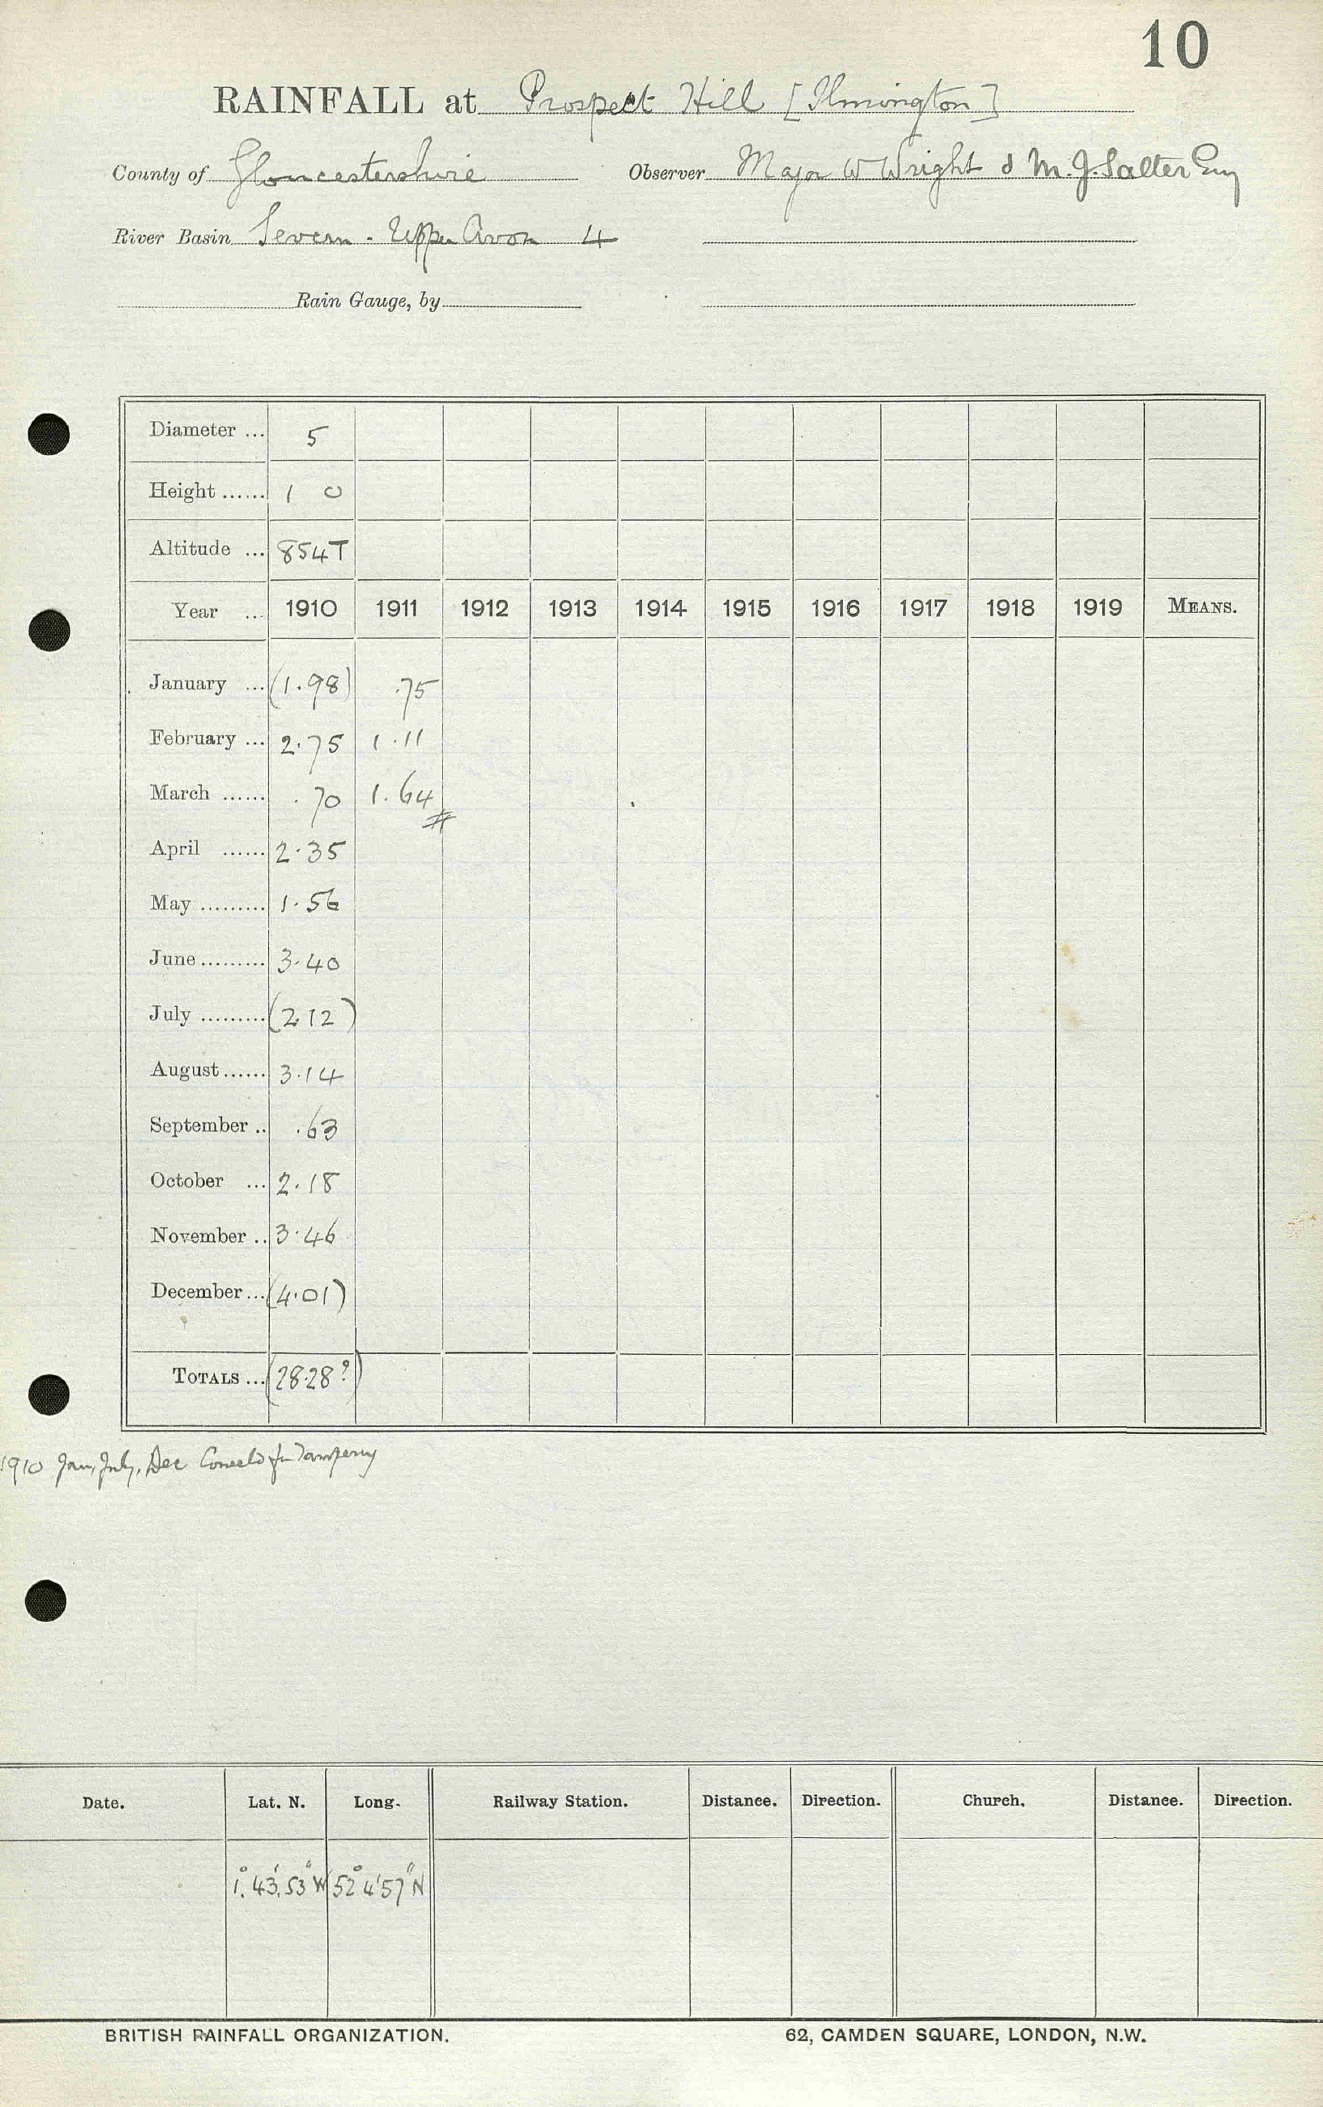 10
RAINFALL at Prospect Hill [Ilmington]
County of Gloucestershire Observer Major W Wright & M. J. Salter Esq
River Basin Severn - Upper Avon 4
Rain Gauge, by
Diameter ... 5
Height ...... 1 0
Altitude ... 854T
Year ... 1910 1911 1912 1913 1914 1915 1916 1917 1918 1919 MEANS.
January ... (1.98) .75
February ... 2.75 1.11
March ...... .70 1.64
April ...... 2.35
May ......... 1.56
June ......... 3.40
July ......... (2.12)
August ...... 3.14
September .. .63
October ... 2.18
November .. 3.46
December ... (4.01)
TOTALS ... (28.28?)
1910 Jan, July, Dec for
Date. Lat. N. Long. Railway Station. Distance. Direction. Church. Distance. Direction.
1° 43' 53" W 52° 4' 57" N
BRITISH RAINFALL ORGANIZATION. 62, CAMDEN SQUARE, LONDON, N.W.